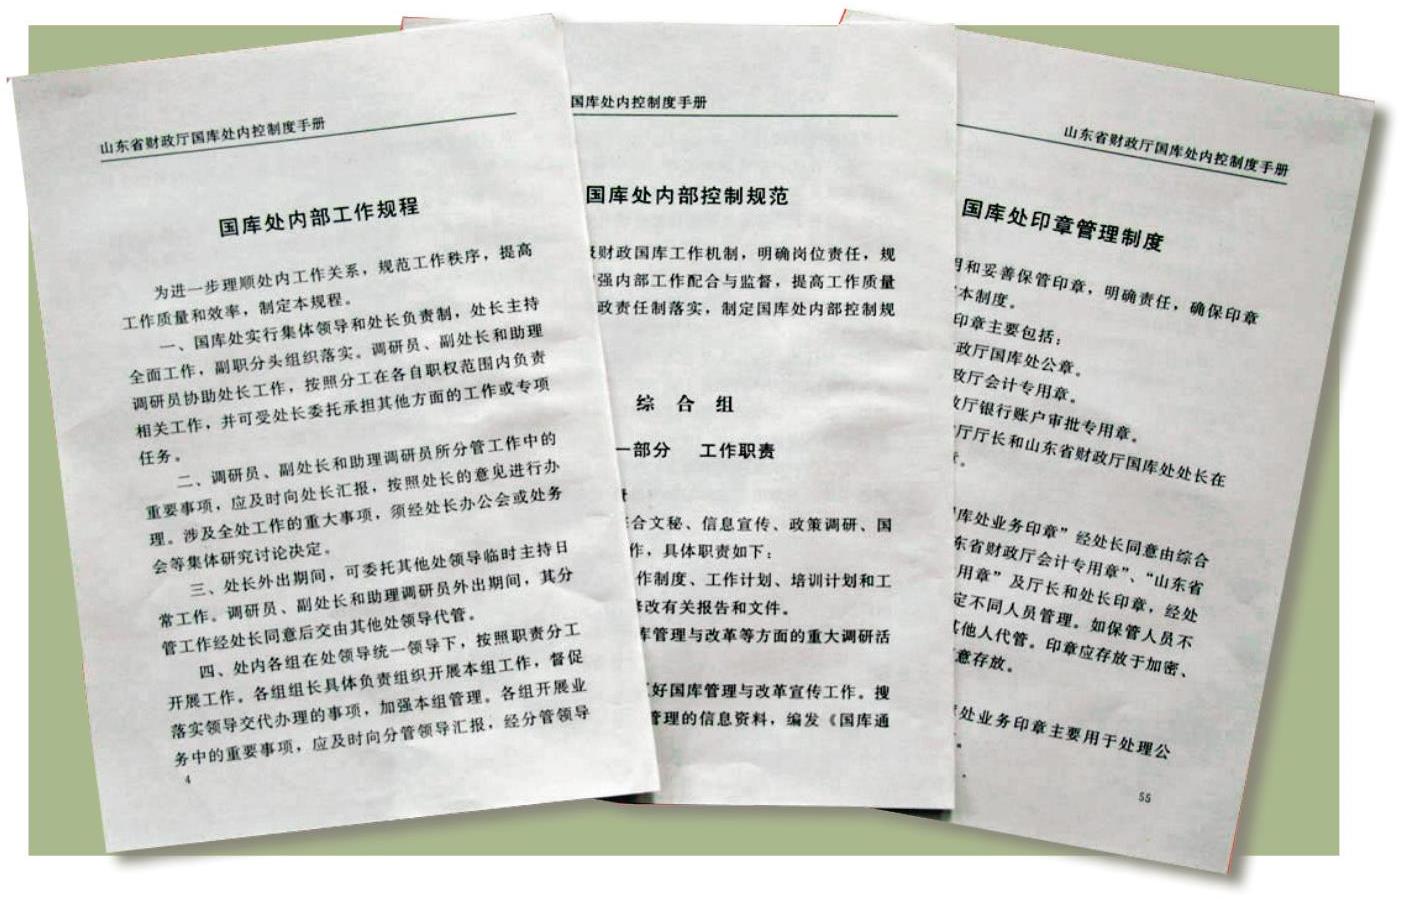 山东省财政厅国库处内控制度手册
国库处内部工作规程
为进一步理顺处内工作关系，规范工作秩序，提高
工作质量和效率，制定本规程。
一、国库处实行集体领导和处长负责制，处长主持
全面工作，副职分头组织落实。调研员、副处长和助理
调研员协助处长工作，按照分工在各自职权范围内负责
相关工作，并可受处长委托承担其他方面的工作或专项
任务。
二、调研员、副处长和助理调研员所分管工作中的
重要事项，应及时向处长汇报，按照处长的意见进行办
理。涉及全处工作的重大事项，须经处长办公会或处务
会等集体研究讨论决定。
三、处长外出期间，可委托其他处领导临时主持日
常工作。调研员、副处长和助理调研员外出期间，其分
管工作经处长同意后交由其他处领导代管。
四、处内各组在处领导统一领导下，按照职责分工
开展工作。各组组长具体负责组织开展本组工作，督促
落实领导交代办理的事项，加强本组管理。各组开展业
务中的重要事项，应及时向分管领导汇报，经分管领导
4
国库处内控制度手册
国库处内部控制规范
财政国库工作机制，明确岗位责任，规
强内部工作配合与监督，提高工作质量
政责任制落实，制定国库处内部控制规
综 合 组
一部分 工作职责
合文秘、信息宣传、政策调研、国
作，具体职责如下：
作制度、工作计划、培训计划和工
修改有关报告和文件。
库管理与改革等方面的重大调研活
好国库管理与改革宣传工作。搜
管理的信息资料，编发《国库通
山东省财政厅国库处内控制度手册
国库处印章管理制度
和妥善保管印章，明确责任，确保印章
本制度。
印章主要包括：
政厅国库处公章。
政厅会计专用章。
政厅银行账户审批专用章。
厅厅长和山东省财政厅国库处处长在
。
库处业务印章”经处长同意由综合
东省财政厅会计专用章”、“山东省
用章”及厅长和处长印章，经处
定不同人员管理。如保管人员不
其他人代管。印章应存放于加密、
意存放。
处业务印章主要用于处理公
55